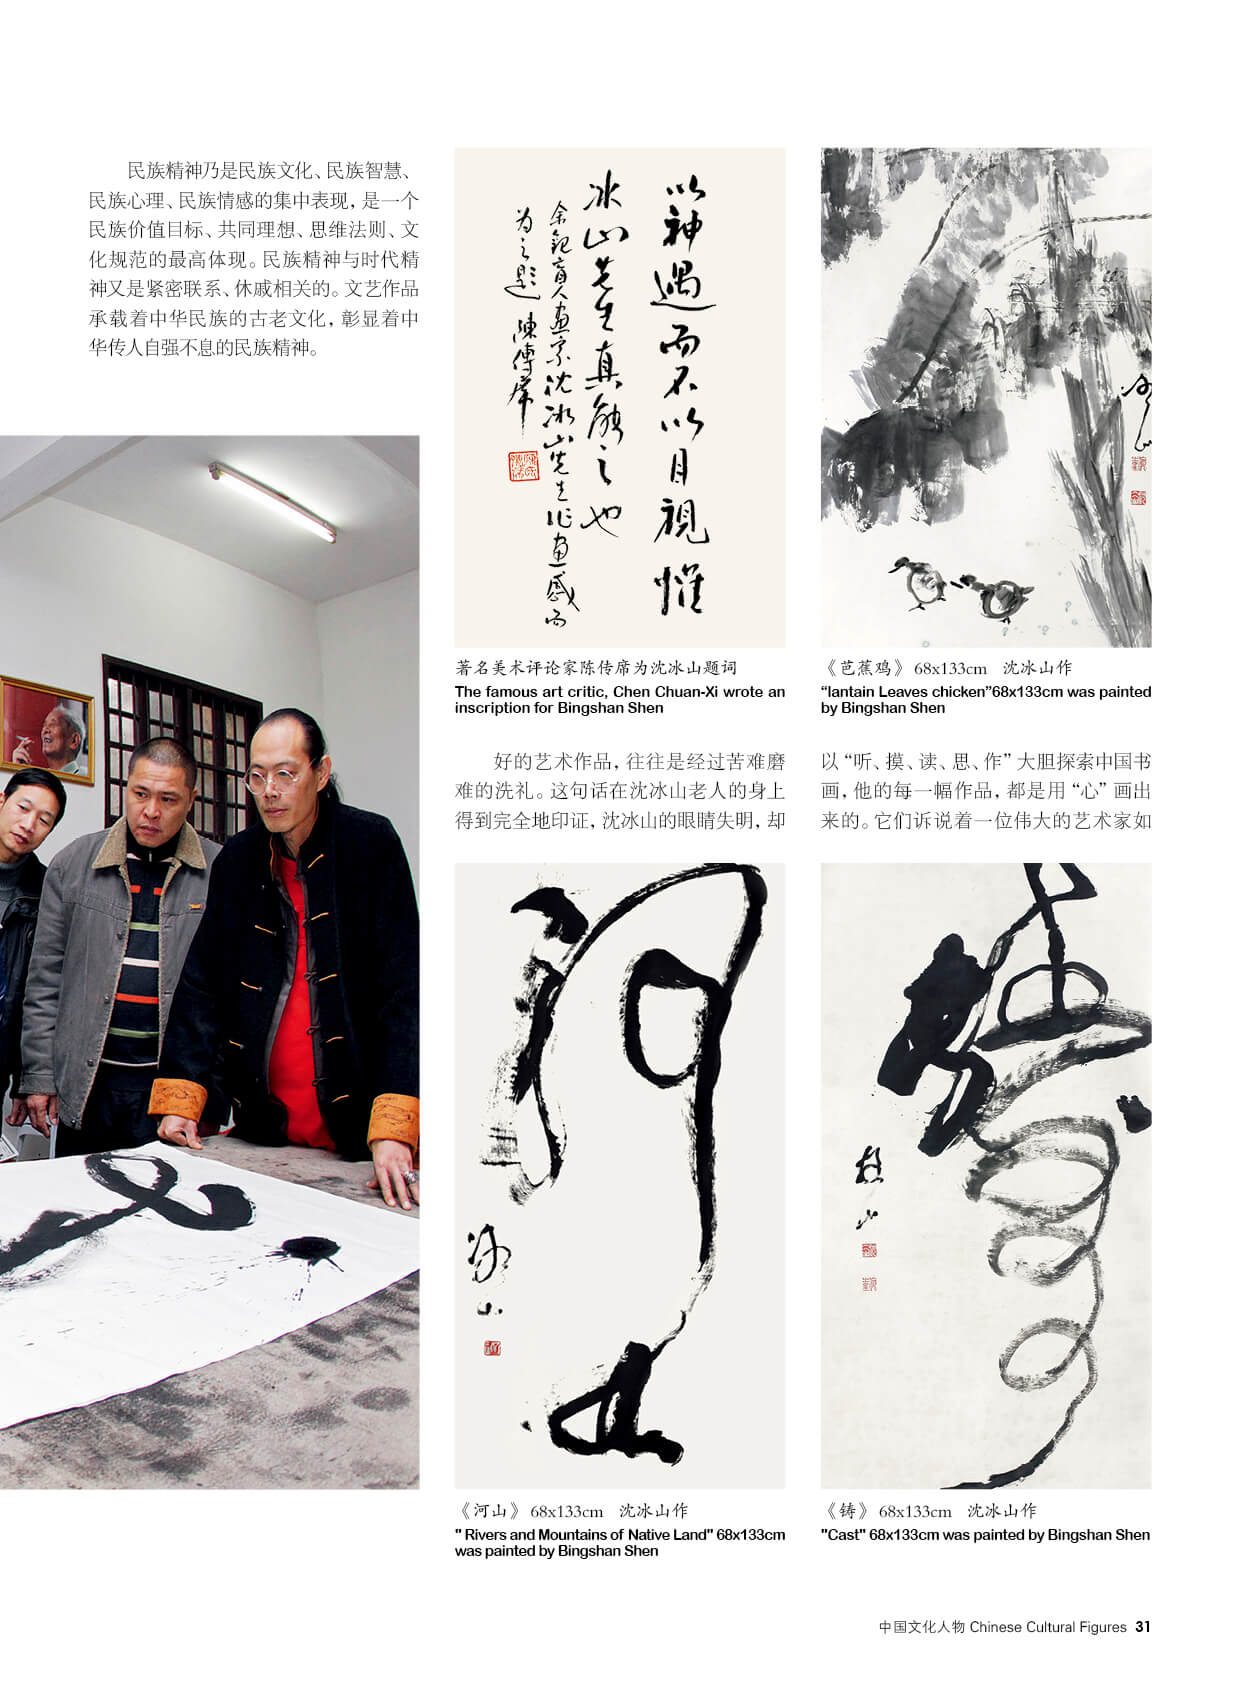 民族精神乃是民族文化、民族智慧、
民族心理、民族情感的集中表现，是一个
民族价值目标、共同理想、思维法则、文
化规范的最高体现。民族精神与时代精
神又是紧密联系、休戚相关的。文艺作品
承载着中华民族的古老文化，彰显着中
华传人自强不息的民族精神。
以神遇而不以目視惟
冰山先生真能之也
余觀盲人畫家沈冰山先生作画感而
为之题 陳傳席
著名美术评论家陈传席为沈冰山题词
The famous art critic, Chen Chuan-Xi wrote an
inscription for Bingshan Shen
《芭蕉鸡》 68x133cm 沈冰山作
“lantain Leaves chicken”68x133cm was painted
by Bingshan Shen
好的艺术作品，往往是经过苦难磨
难的洗礼。这句话在沈冰山老人的身上
得到完全地印证，沈冰山的眼睛失明，却
以“听、摸、读、思、作”大胆探索中国书
画，他的每一幅作品，都是用“心”画出
来的。它们诉说着一位伟大的艺术家如
河山
冰山
《河山》 68x133cm 沈冰山作
" Rivers and Mountains of Native Land" 68x133cm
was painted by Bingshan Shen
鑄
《铸》 68x133cm 沈冰山作
"Cast" 68x133cm was painted by Bingshan Shen
中国文化人物 Chinese Cultural Figures 31